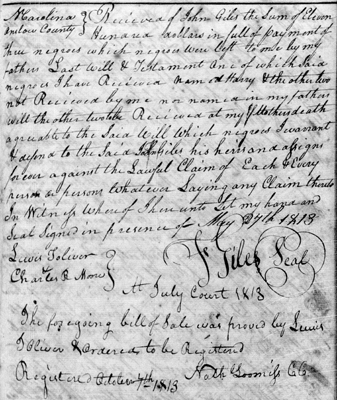 Carolina } Received of John Giles the Sum of Eleven
onslow County } Hundred dollars in full of payment of
three negroes which negroes were left to me by my
fathers Last Will & Testament One of which Said
negroes I have Received Named Harry & the other two
not Received by me nor named in my fathers
will the other two to be Received at my Mothers death
agreable to the Said Will Which negroes I warant
& defend to the Said John Giles his heirs and assigns
for ever against the Lawful Claim of Each & Every
person or persons Whatever Laying any Claim thereto
In Witness Where of I here unto Set my hand and
Seal Signed in presence of May 27th 1813
Lewis Toliver
Charles R. More } Giles Seal
At July Court 1813
The foregoing bill of Sale was proved by Lewis
Toliver & Ordered to be Registered
Registered October 7th 1813 Nath Loomis